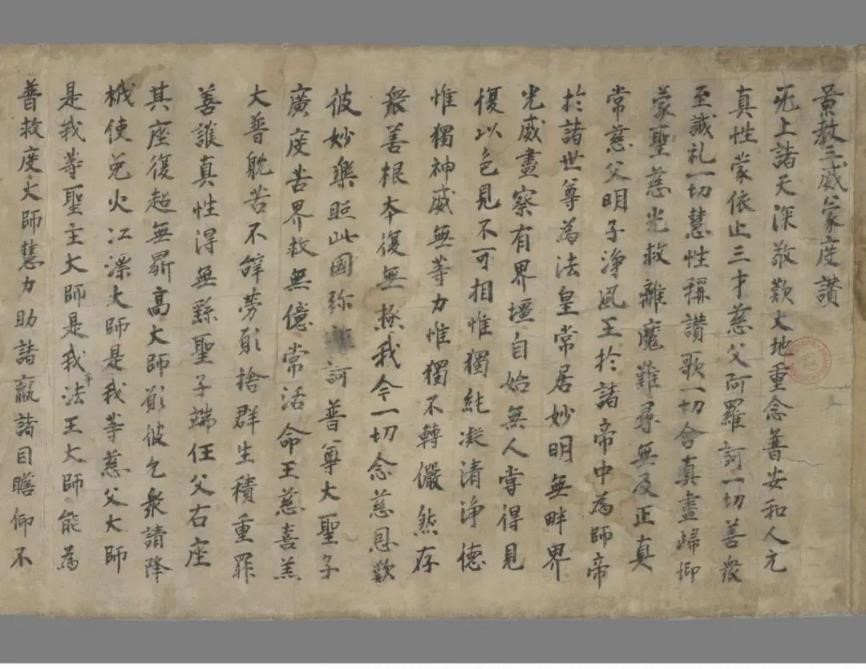 景教三威蒙度讚
无上諸天深敬歎大地重念普安和人元
真性蒙依止三才慈父阿羅訶一切善衆
至誠礼一切慧性稱讚歌一切含真盡歸仰
蒙聖慈光救離魔難尋無及正真
常慈父明子淨風王於諸帝中為師帝
於諸世尊為法皇常居妙明無畔界
光威盡察有界壃自始無人嘗得見
復以色見不可相惟獨純凝清淨德
惟獨神威無等力惟獨不轉儼然存
衆善根本復無極我今一切念慈恩歎
彼妙樂照此國弥訶普尊大聖子
廣度苦界救無億常活命王慈喜羔
大普躭苦不辝勞願捨群生積重罪
善護真性得無繇聖子端任父右座
其座復超無鼎高大師願彼乞衆請降
栰使免火江漂大師是我等慈父大師
是我等聖主大師是我法王大師能為
普救度大師慧力助諸羸諸目瞻仰不